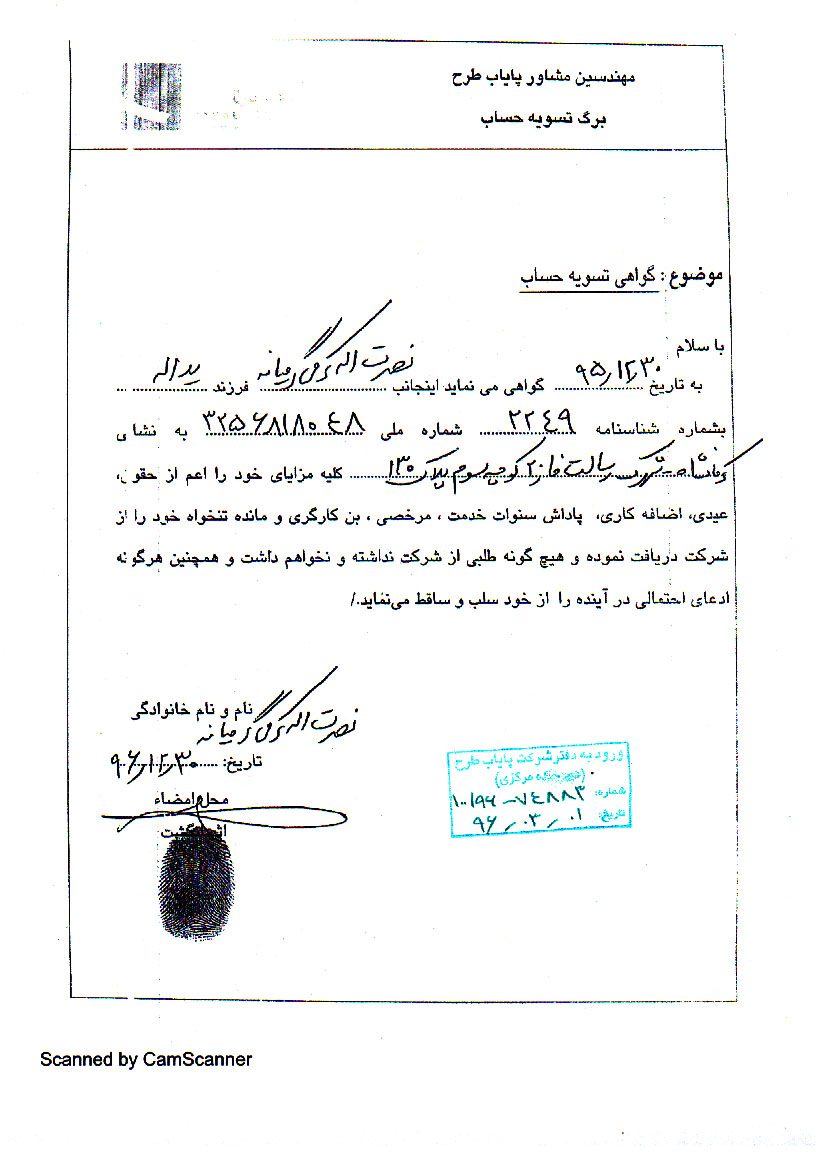 مهندسین مشاور پایاب طرح
برگ تسویه حساب
موضوع : گواهی تسویه حساب
با سلام
به تاریخ ۹۵/۱۲/۳۰ گواهی می نماید اینجانب نصرت اله کرمی فرزند یداله
بشماره شناسنامه ۲۲۴۹ شماره ملی ۳۲۵۶۸۱۸۰۴۸ به نشانی
کرمانشاه - شهرک رسالت فاز ۲ کوچه سوم پلاک ۱۳۰ کلیه مزایای خود را اعم از حقوق،
عیدی، اضافه کاری، پاداش سنوات خدمت ، مرخصی ، بن کارگری و مانده تنخواه خود را از
شرکت دریافت نموده و هیچ گونه طلبی از شرکت نداشته و نخواهم داشت و همچنین هرگونه
ادعای احتمالی در آینده را از خود سلب و ساقط می‌نماید./
نام و نام خانوادگی
نصرت اله کرمی
تاریخ: ۹۶/۱۲/۳۰
محل امضاء
اثر انگشت
ورود به دفتر شرکت پایاب طرح
(دبیرخانه مرکزی)
شماره: ۱۰۰/۹۶-۷۴۸۸۳
تاریخ: ۹۶/۰۳/۰۱
Scanned by CamScanner